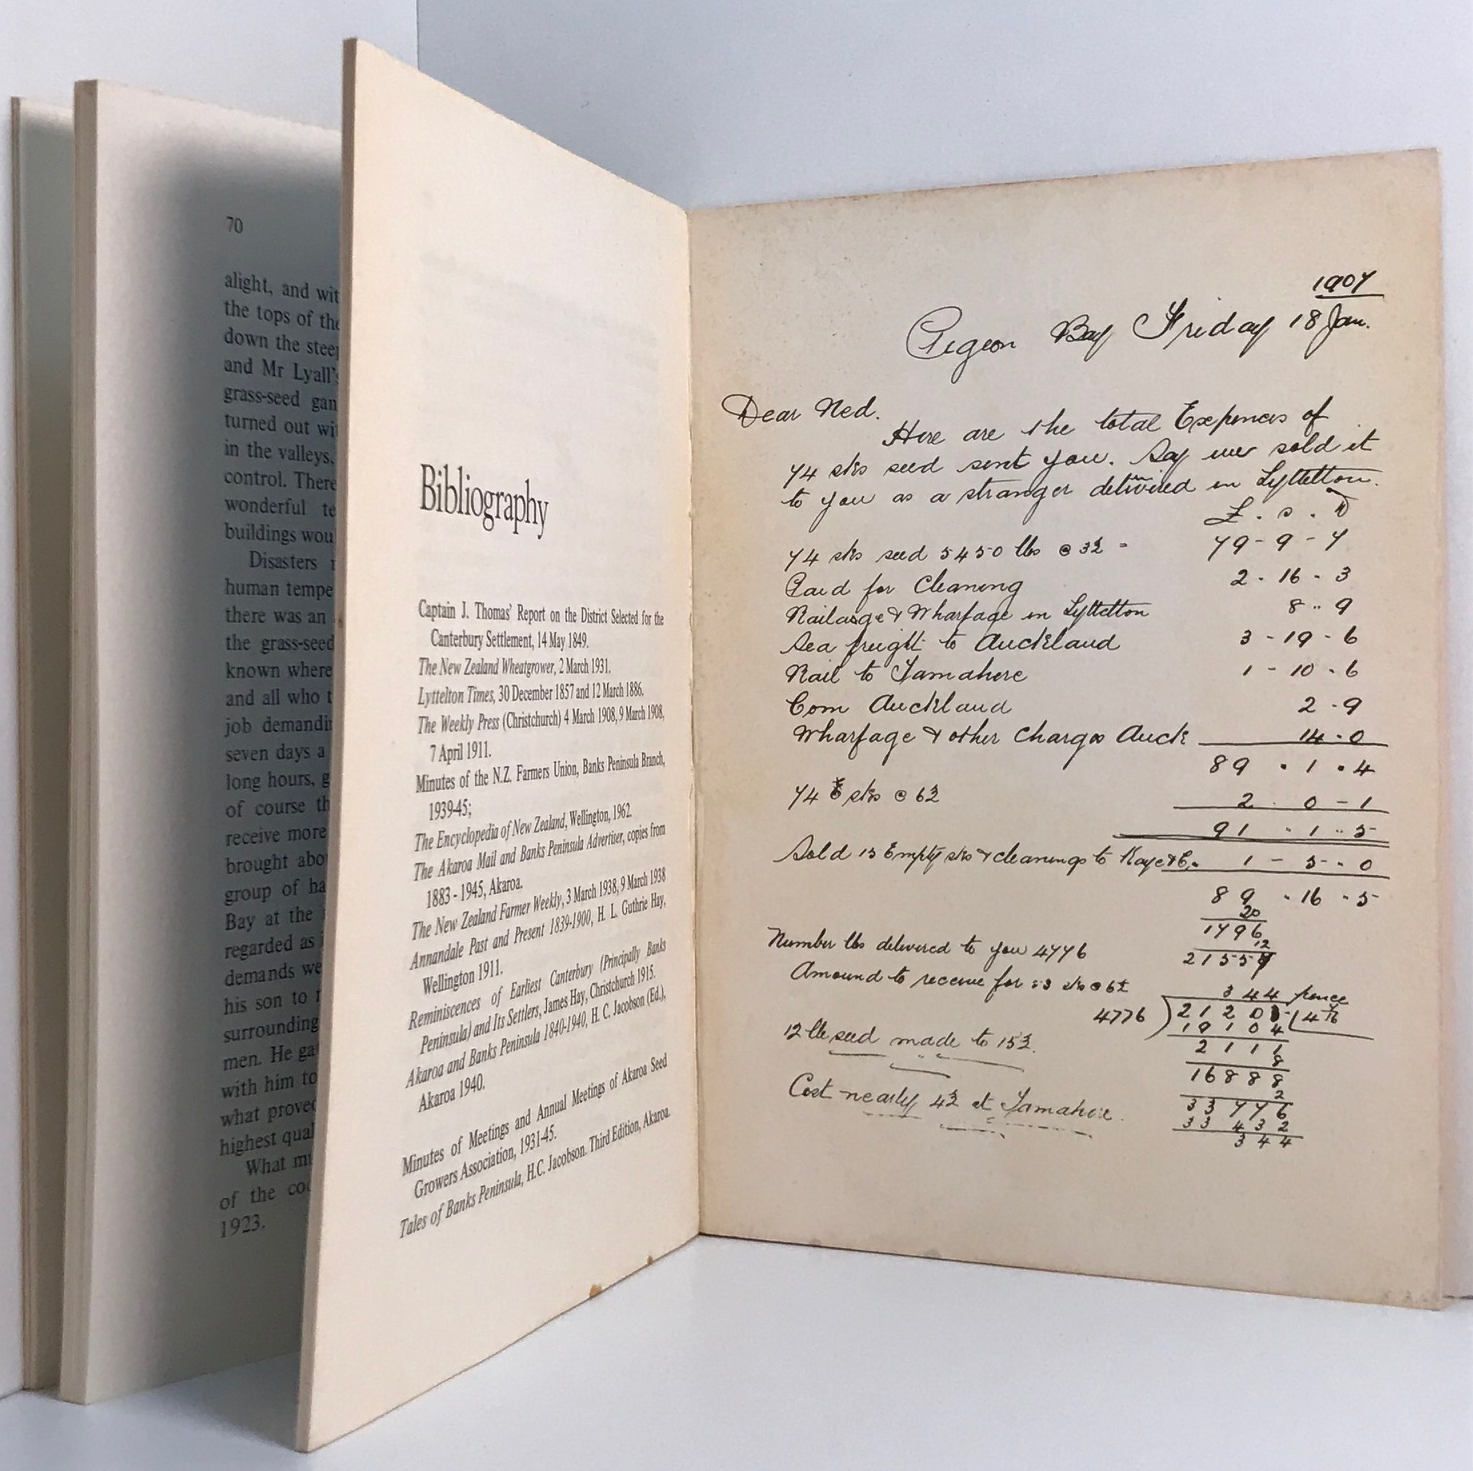 70
alight, and wit
the tops of the
down the steep
and Mr Lyall's
grass-seed gan
turned out wi
in the valleys.
control. There
wonderful te
buildings wou
Disasters
human tempe
there was an
the grass-seed
known where
and all who t
job demandin
seven days a
long hours, g
of course th
receive more
brought abo
group of ha
Bay at the
regarded as i
demands we
his son to
surrounding
men. He ga
with him to
what prove
highest qual
What mu
of the coc
1923.
Bibliography
Captain J. Thomas' Report on the District Selected for the
Canterbury Settlement, 14 May 1849.
The New Zealand Wheatgrower, 2 March 1931.
Lyttelton Times, 30 December 1857 and 12 March 1886.
The Weekly Press (Christchurch) 4 March 1908, 9 March 1908,
7 April 1911.
Minutes of the N.Z. Farmers Union, Banks Peninsula Branch,
1939-45;
The Encyclopedia of New Zealand, Wellington, 1962.
The Akaroa Mail and Banks Peninsula Advertiser, copies from
1883 - 1945, Akaroa.
The New Zealand Farmer Weekly, 3 March 1938, 9 March 1938
Annandale Past and Present 1839-1900, H. L. Guthrie Hay,
Wellington 1911.
Reminiscences of Earliest Canterbury (Principally Banks
Peninsula) and Its Settlers, James Hay, Christchurch 1915.
Akaroa and Banks Peninsula 1840-1940, H. C. Jacobson (Ed.),
Akaroa 1940.
Minutes of Meetings and Annual Meetings of Akaroa Seed
Growers Association, 1931-45.
Tales of Banks Peninsula, H.C. Jacobson. Third Edition, Akaroa.
1907
Pigeon Bay Friday 18 Jan.
Dear Ned.
Here are the total Expences of
74 sks seed sent you. Say we sold it
to you as a stranger delivered in Lyttelton.
£ . s . D
74 sks seed 5450 lbs @ 3½ - 79 - 9 - 7
Paid for Cleaning 2 - 16 - 3
Railage & Wharfage in Lyttelton 8 - 9
Sea freight to Auckland 3 - 19 - 6
Rail to Tamahere 1 - 10 - 6
Com Auckland 2 - 9
Wharfage & other Charges Auck 14 - 0
89 . 1 . 4
74 sks @ 6½ 2 . 0 - 1
91 . 1 . 5
Sold 15 Empty sks & cleanings to Kaye & C. 1 - 5 - 0
89 . 16 . 5
20
1796
12
Number lbs delivered to you 4776 21557
Amound to receive for sks @ 6½
344 pence
4776 ) 21205 ( 4
19104
12 lb seed made to 15½. 2111
8
16888
2
Cost nearly 4½ at Tamahere. 33776
33432
344